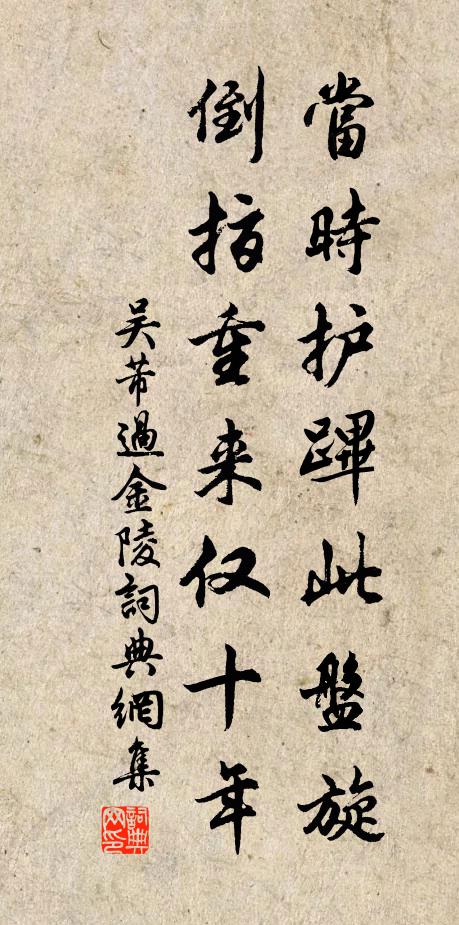 當時护蹕此盤旋
倒指重来仅十年
吴芾過金陵詞典網集
詞典网印